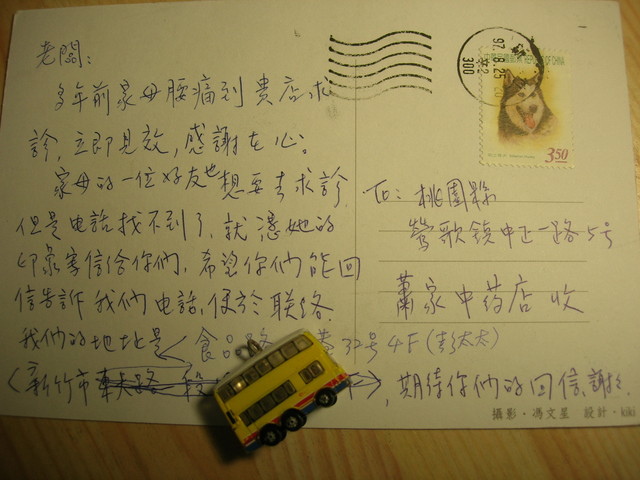 老闆：
多年前家母腰痛到貴店求
診，立即見效，感謝在心。
家母的一位好友也想要去求診
但是電話找不到了，就憑她的
印象寄信給你們，希望你們能回
信告訴我們電話，便於联络。
我們的地址是 食品路 巷32号4F(彭太太)
(新竹市 段 )，期待你們的回信，謝謝
TO：桃園縣
鶯歌鎮中正一路5号
蕭家中药店收
97.8.25
300
REPUBLIC OF CHINA
350
攝影・馮文星 設計・kiki